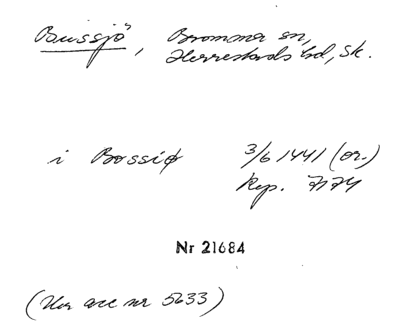 Bussjö, Bromma sn,
Herrestads hd, Sk.
i Bossiø 3/6 1441 (or.)
Rep. 7174
Nr 21684
(Hos acc nr 5633)